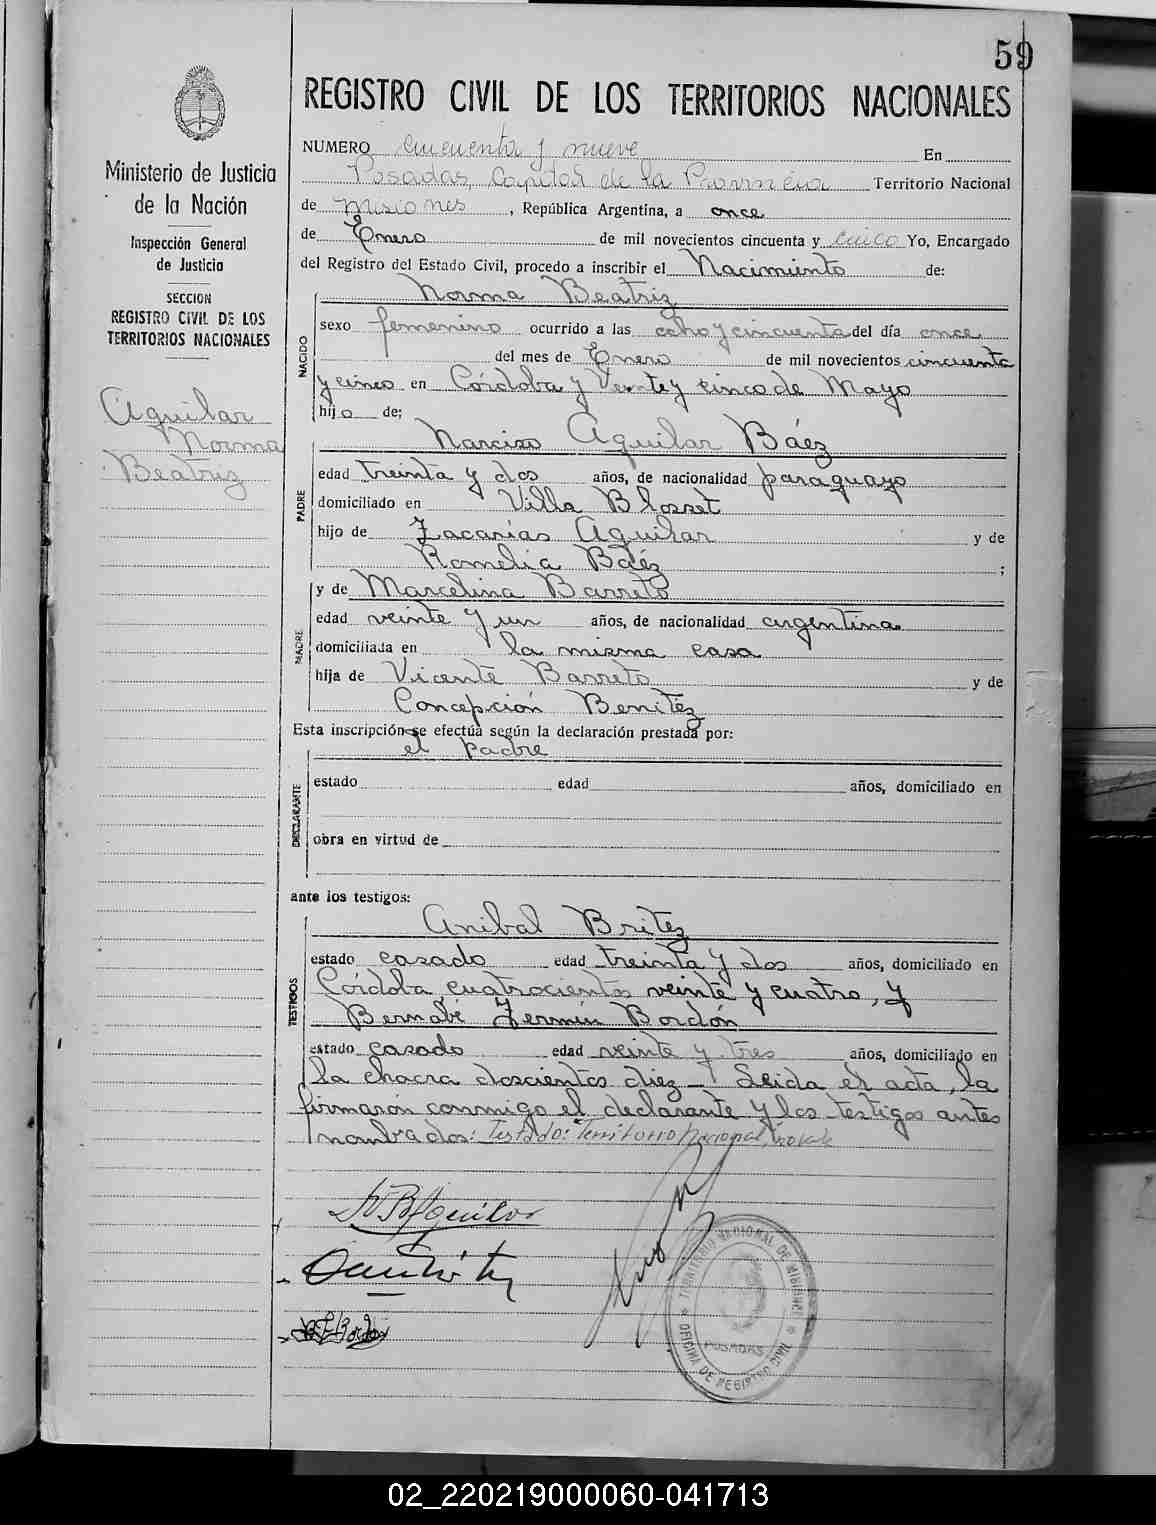 59
Ministerio de Justicia
de la Nación
Inspección General
de Justicia
SECCION
REGISTRO CIVIL DE LOS
TERRITORIOS NACIONALES
Aguilar
Norma
Beatriz
REGISTRO CIVIL DE LOS TERRITORIOS NACIONALES
NUMERO cincuenta y nueve En
Posadas, Capital de la Provincia Territorio Nacional
de Misiones, República Argentina, a once
de Enero de mil novecientos cincuenta y cinco Yo, Encargado
del Registro del Estado Civil, procedo a inscribir el Nacimiento de:
NACIDO
Norma Beatriz
sexo femenino ocurrido a las ocho y cincuenta del día once
del mes de Enero de mil novecientos cincuenta
y cinco en Córdoba y Veinte y cinco de Mayo
hijo de;
PADRE
Narciso Aguilar Báez
edad treinta y dos años, de nacionalidad paraguayo
domiciliado en Villa Blosset
hijo de Zacarías Aguilar y de
Romelia Báez ;
y de Marcelina Barreto
MADRE
edad veinte y un años, de nacionalidad argentina
domiciliada en la misma casa
hija de Vicente Barreto y de
Concepción Benítez
Esta inscripción se efectúa según la declaración prestada por:
el padre
DECLARANTE
estado edad años, domiciliado en
obra en virtud de
ante los testigos:
TESTIGOS
Anibal Britez
estado casado edad treinta y dos años, domiciliado en
Córdoba cuatrocientos veinte y cuatro, y
Bernabé Fermín Bordón
estado casado edad veinte y tres años, domiciliado en
la chacra doscientos diez - Leida el acta, la
firmaron conmigo el declarante y los testigos antes
nombrados: Testado: Territorio Nacional, no vale
N B Aguilar
TERRITORIO NACIONAL DE MISIONES
POSADAS
OFICINA DE REGISTRO CIVIL
02_220219000060-041713